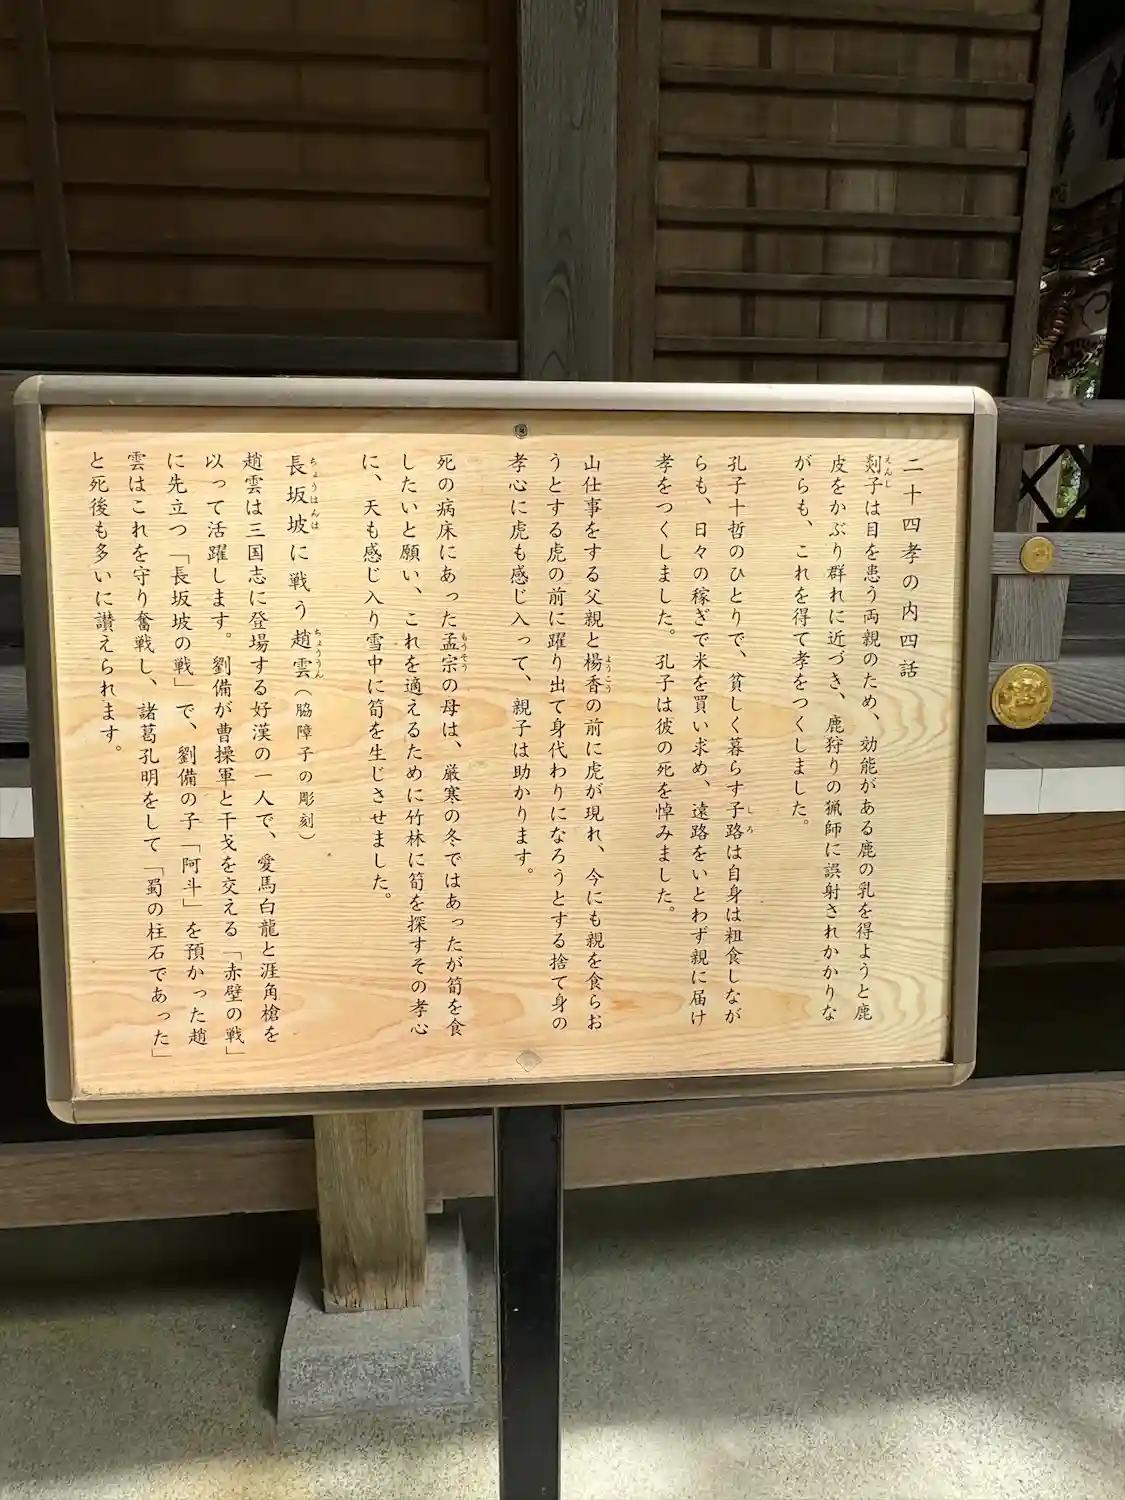 二十四孝の内四話
剡子は目を患う両親のため、効能がある鹿の乳を得ようと鹿
皮をかぶり群れに近づき、鹿狩りの猟師に誤射されかかりな
がらも、これを得て孝をつくしました。
孔子十哲のひとりで、貧しく暮らす子路は自身は粗食しなが
らも、日々の稼ぎで米を買い求め、遠路をいとわず親に届け
孝をつくしました。孔子は彼の死を悼みました。
山仕事をする父親と楊香の前に虎が現れ、今にも親を食らお
うとする虎の前に躍り出て身代わりになろうとする捨て身の
孝心に虎も感じ入って、親子は助かります。
死の病床にあった孟宗の母は、厳寒の冬ではあったが筍を食
したいと願い、これを適えるために竹林に筍を探すその孝心
に、天も感じ入り雪中に筍を生じさせました。
長坂坡に戦う趙雲(脇障子の彫刻)
趙雲は三国志に登場する好漢の一人で、愛馬白龍と涯角槍を
以って活躍します。劉備が曹操軍と干戈を交える「赤壁の戦」
に先立つ「長坂坡の戦」で、劉備の子「阿斗」を預かった趙
雲はこれを守り奮戦し、諸葛孔明をして「蜀の柱石であった」
と死後も多いに讃えられます。
えんし
しろ
ようこう
もうそう
ちょうはんは
ちょううん